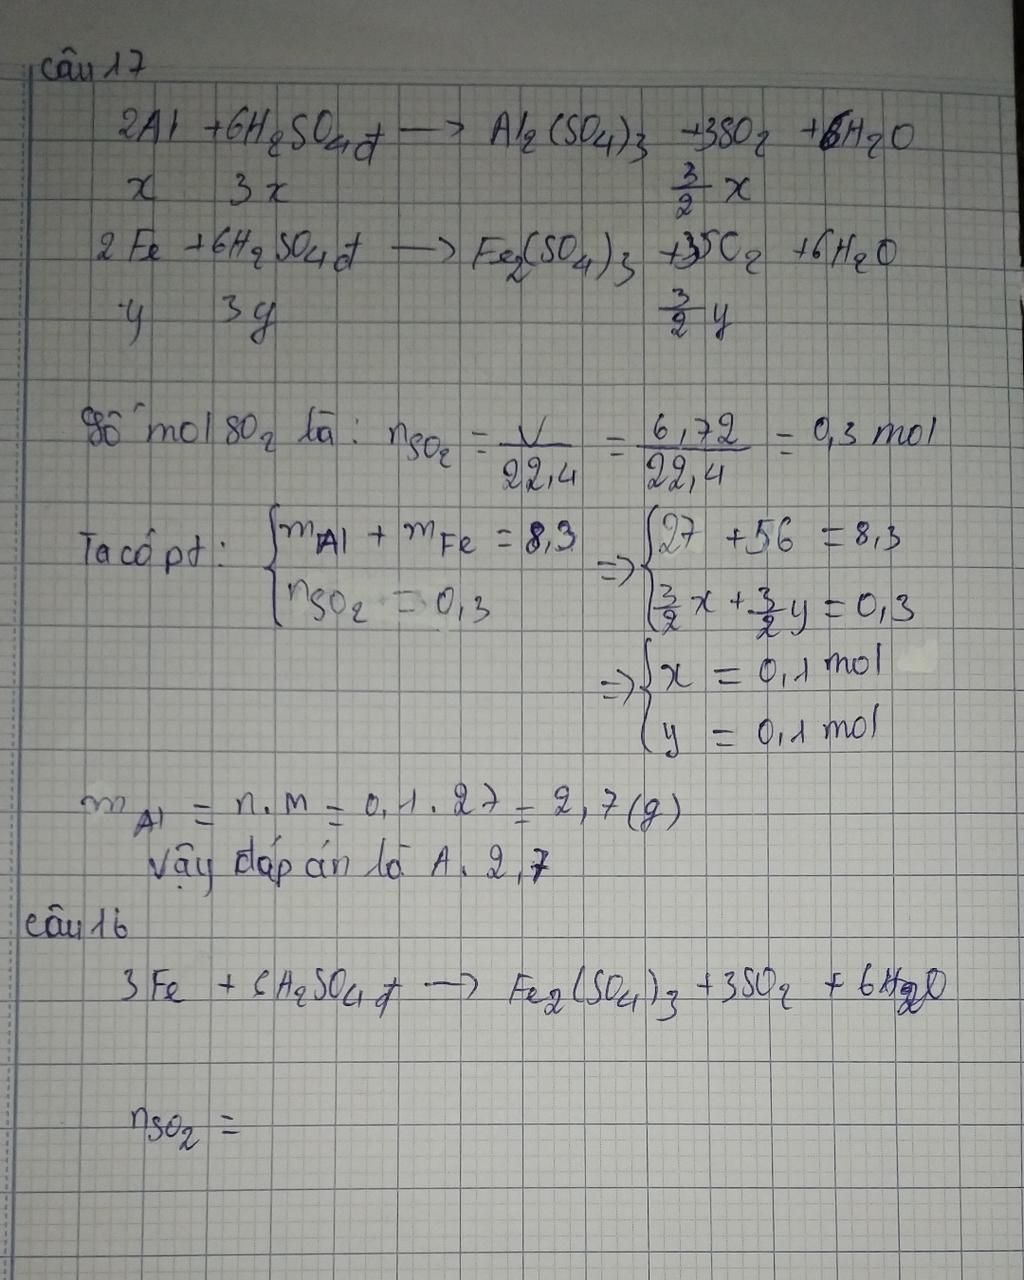 Câu 17
2Al + 6H₂SO₄đ → Al₂(SO₄)₃ + 3SO₂ + 6H₂O
x 3x 3/2 x
2Fe + 6H₂SO₄đ → Fe₂(SO₄)₃ + 3SO₂ + 6H₂O
y 3y 3/2 y
Số mol SO₂ là: nSO₂ = V/22,4 = 6,72/22,4 = 0,3 mol
Ta có pt: { mAl + mFe = 8,3 ⇒ { 27 + 56 = 8,3
nSO₂ = 0,3 3/2 x + 3/2 y = 0,3
⇒ { x = 0,1 mol
y = 0,1 mol
mAl = n.M = 0,1.27 = 2,7(g)
Vậy đáp án là A. 2,7
Câu 16
3Fe + 6H₂SO₄đ → Fe₂(SO₄)₃ + 3SO₂ + 6H₂O
nSO₂ =